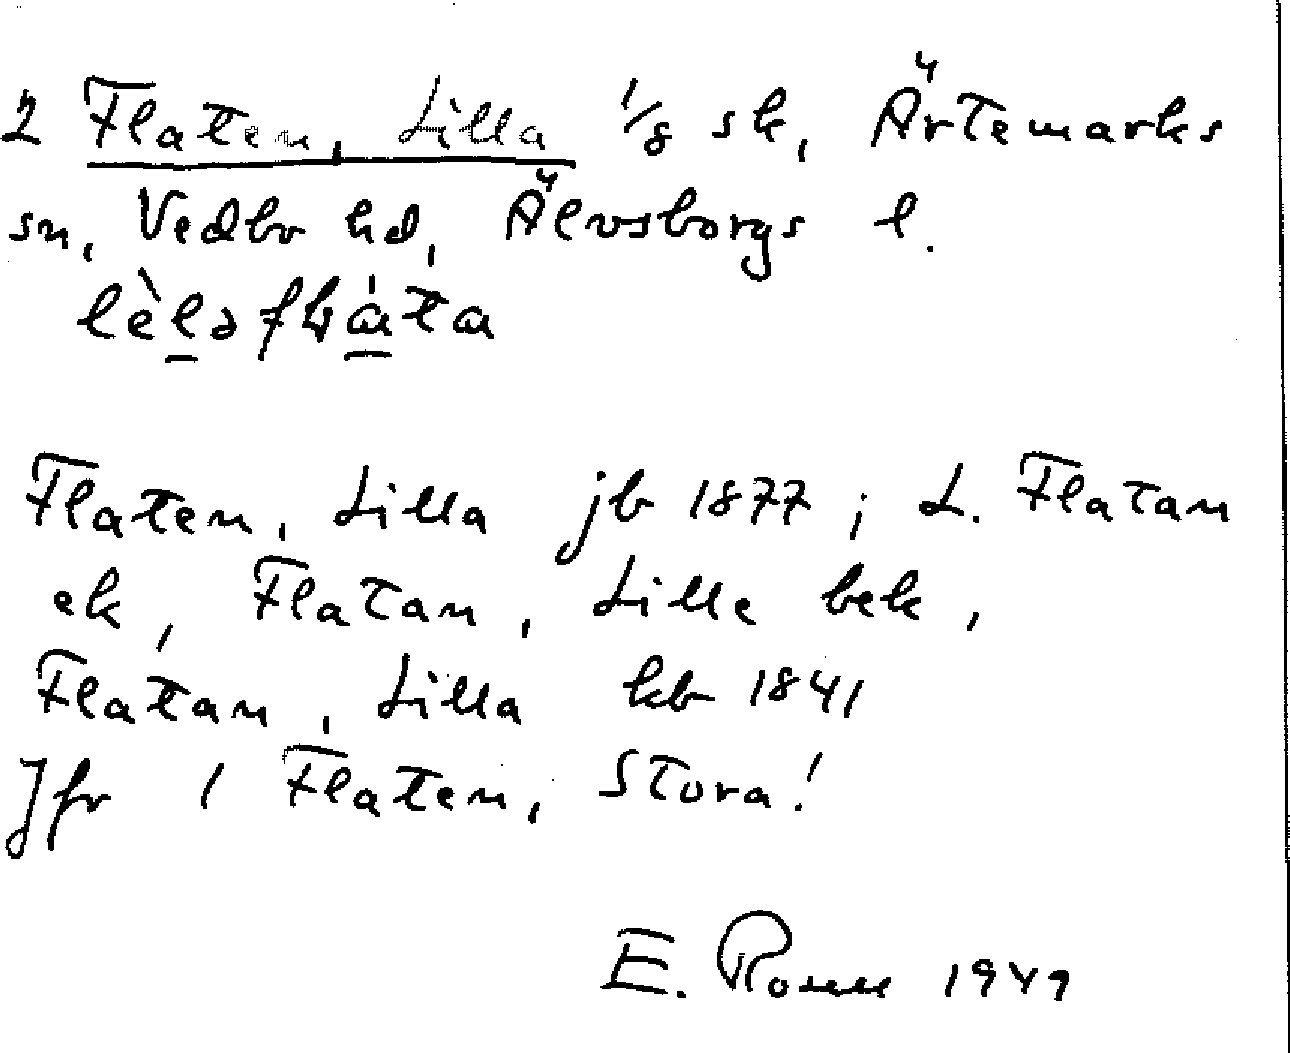 2 Flaten, Lilla 1/8 sk, Ärtemarks
sn, Vedbo hd, Älvsborgs l.
Flaten, Lilla jb 1877; L. Flatan
ek, Flatan, Lille bek,
Flatan, Lilla kb 1841
Jfr 1 Flaten, Stora!
E. 1949